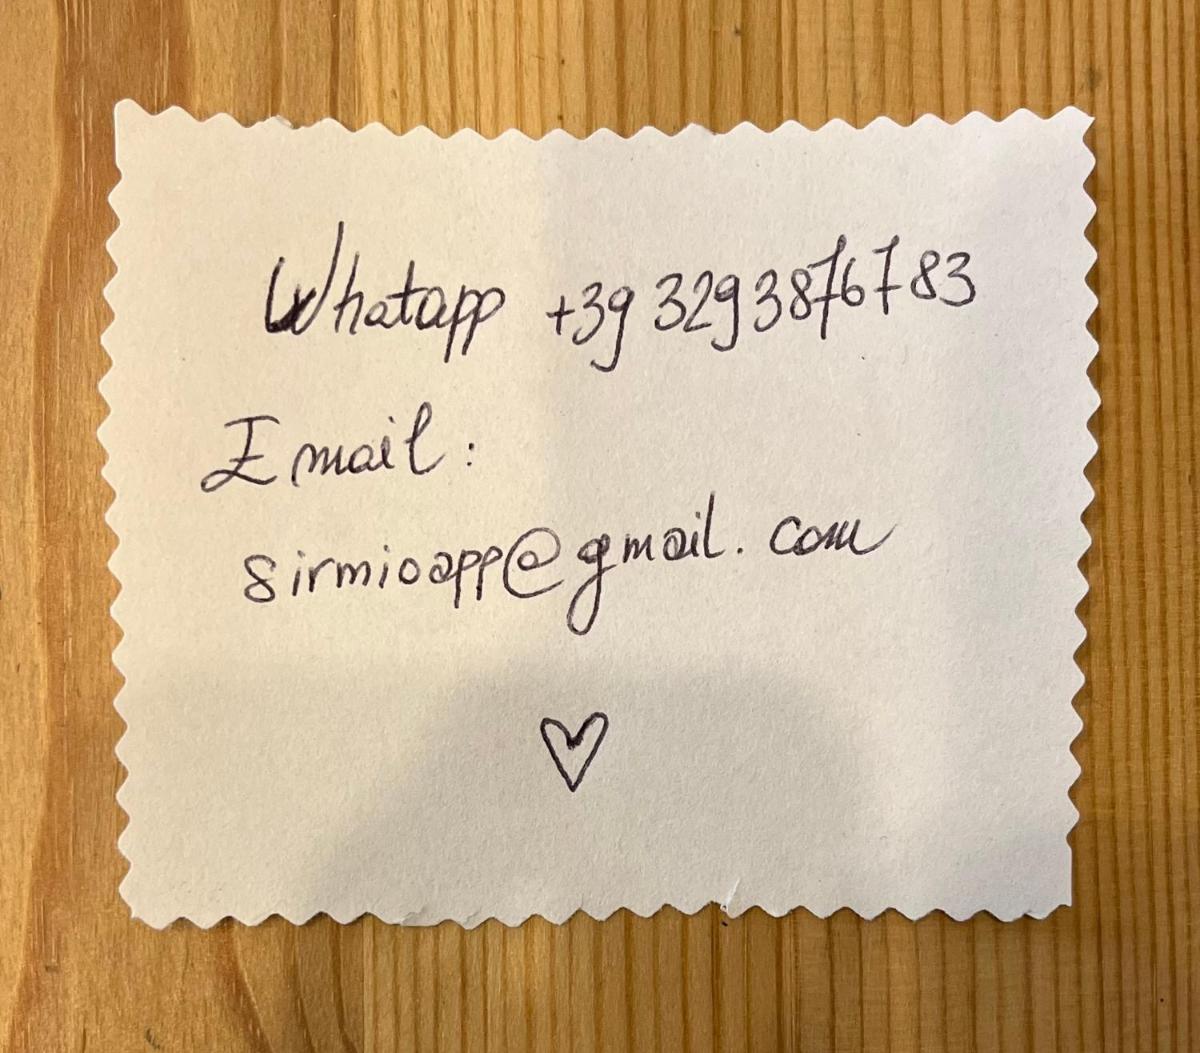 Whatapp +39 3293876783
Email:
sirmioapp@gmail.com